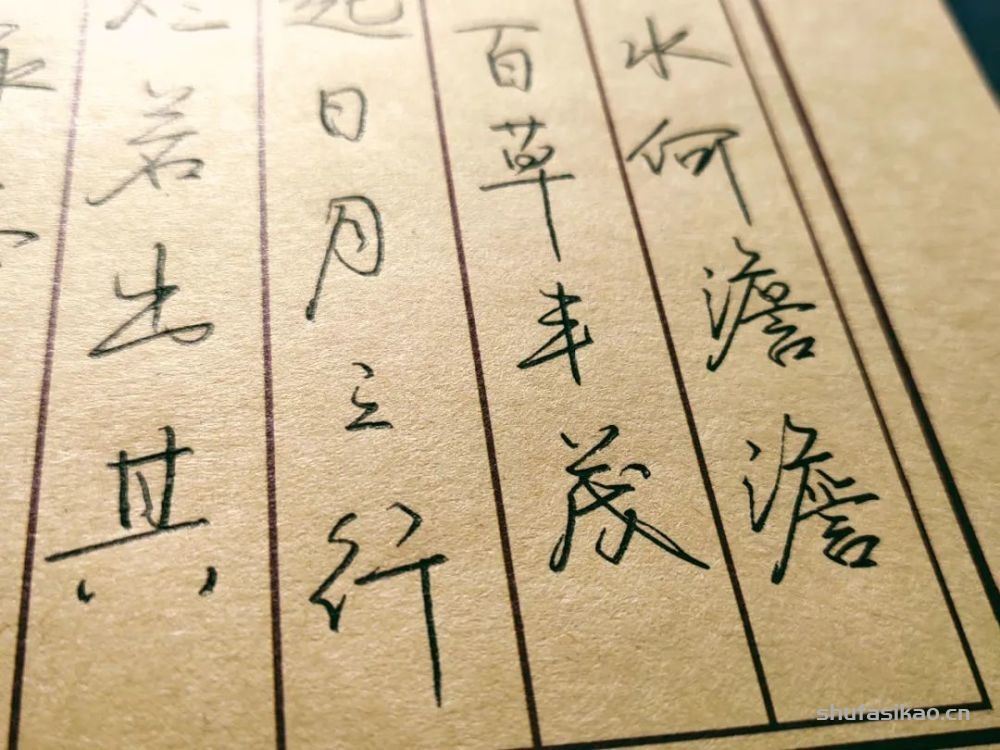 水何澹澹
百草丰茂
起日月之行
烂若出其
shufasikao.cn